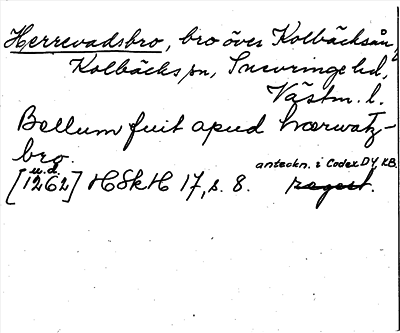 Herrevadsbro, bro över Kolbäcksån,
Kolbäcks sn, Snevringe hd,
Västm. l.
Bellum fuit apud hærwatz-
bro.
u.d. anteckn. i Codex DY, KB.
[1262] HSkH 17, s. 8. regest.